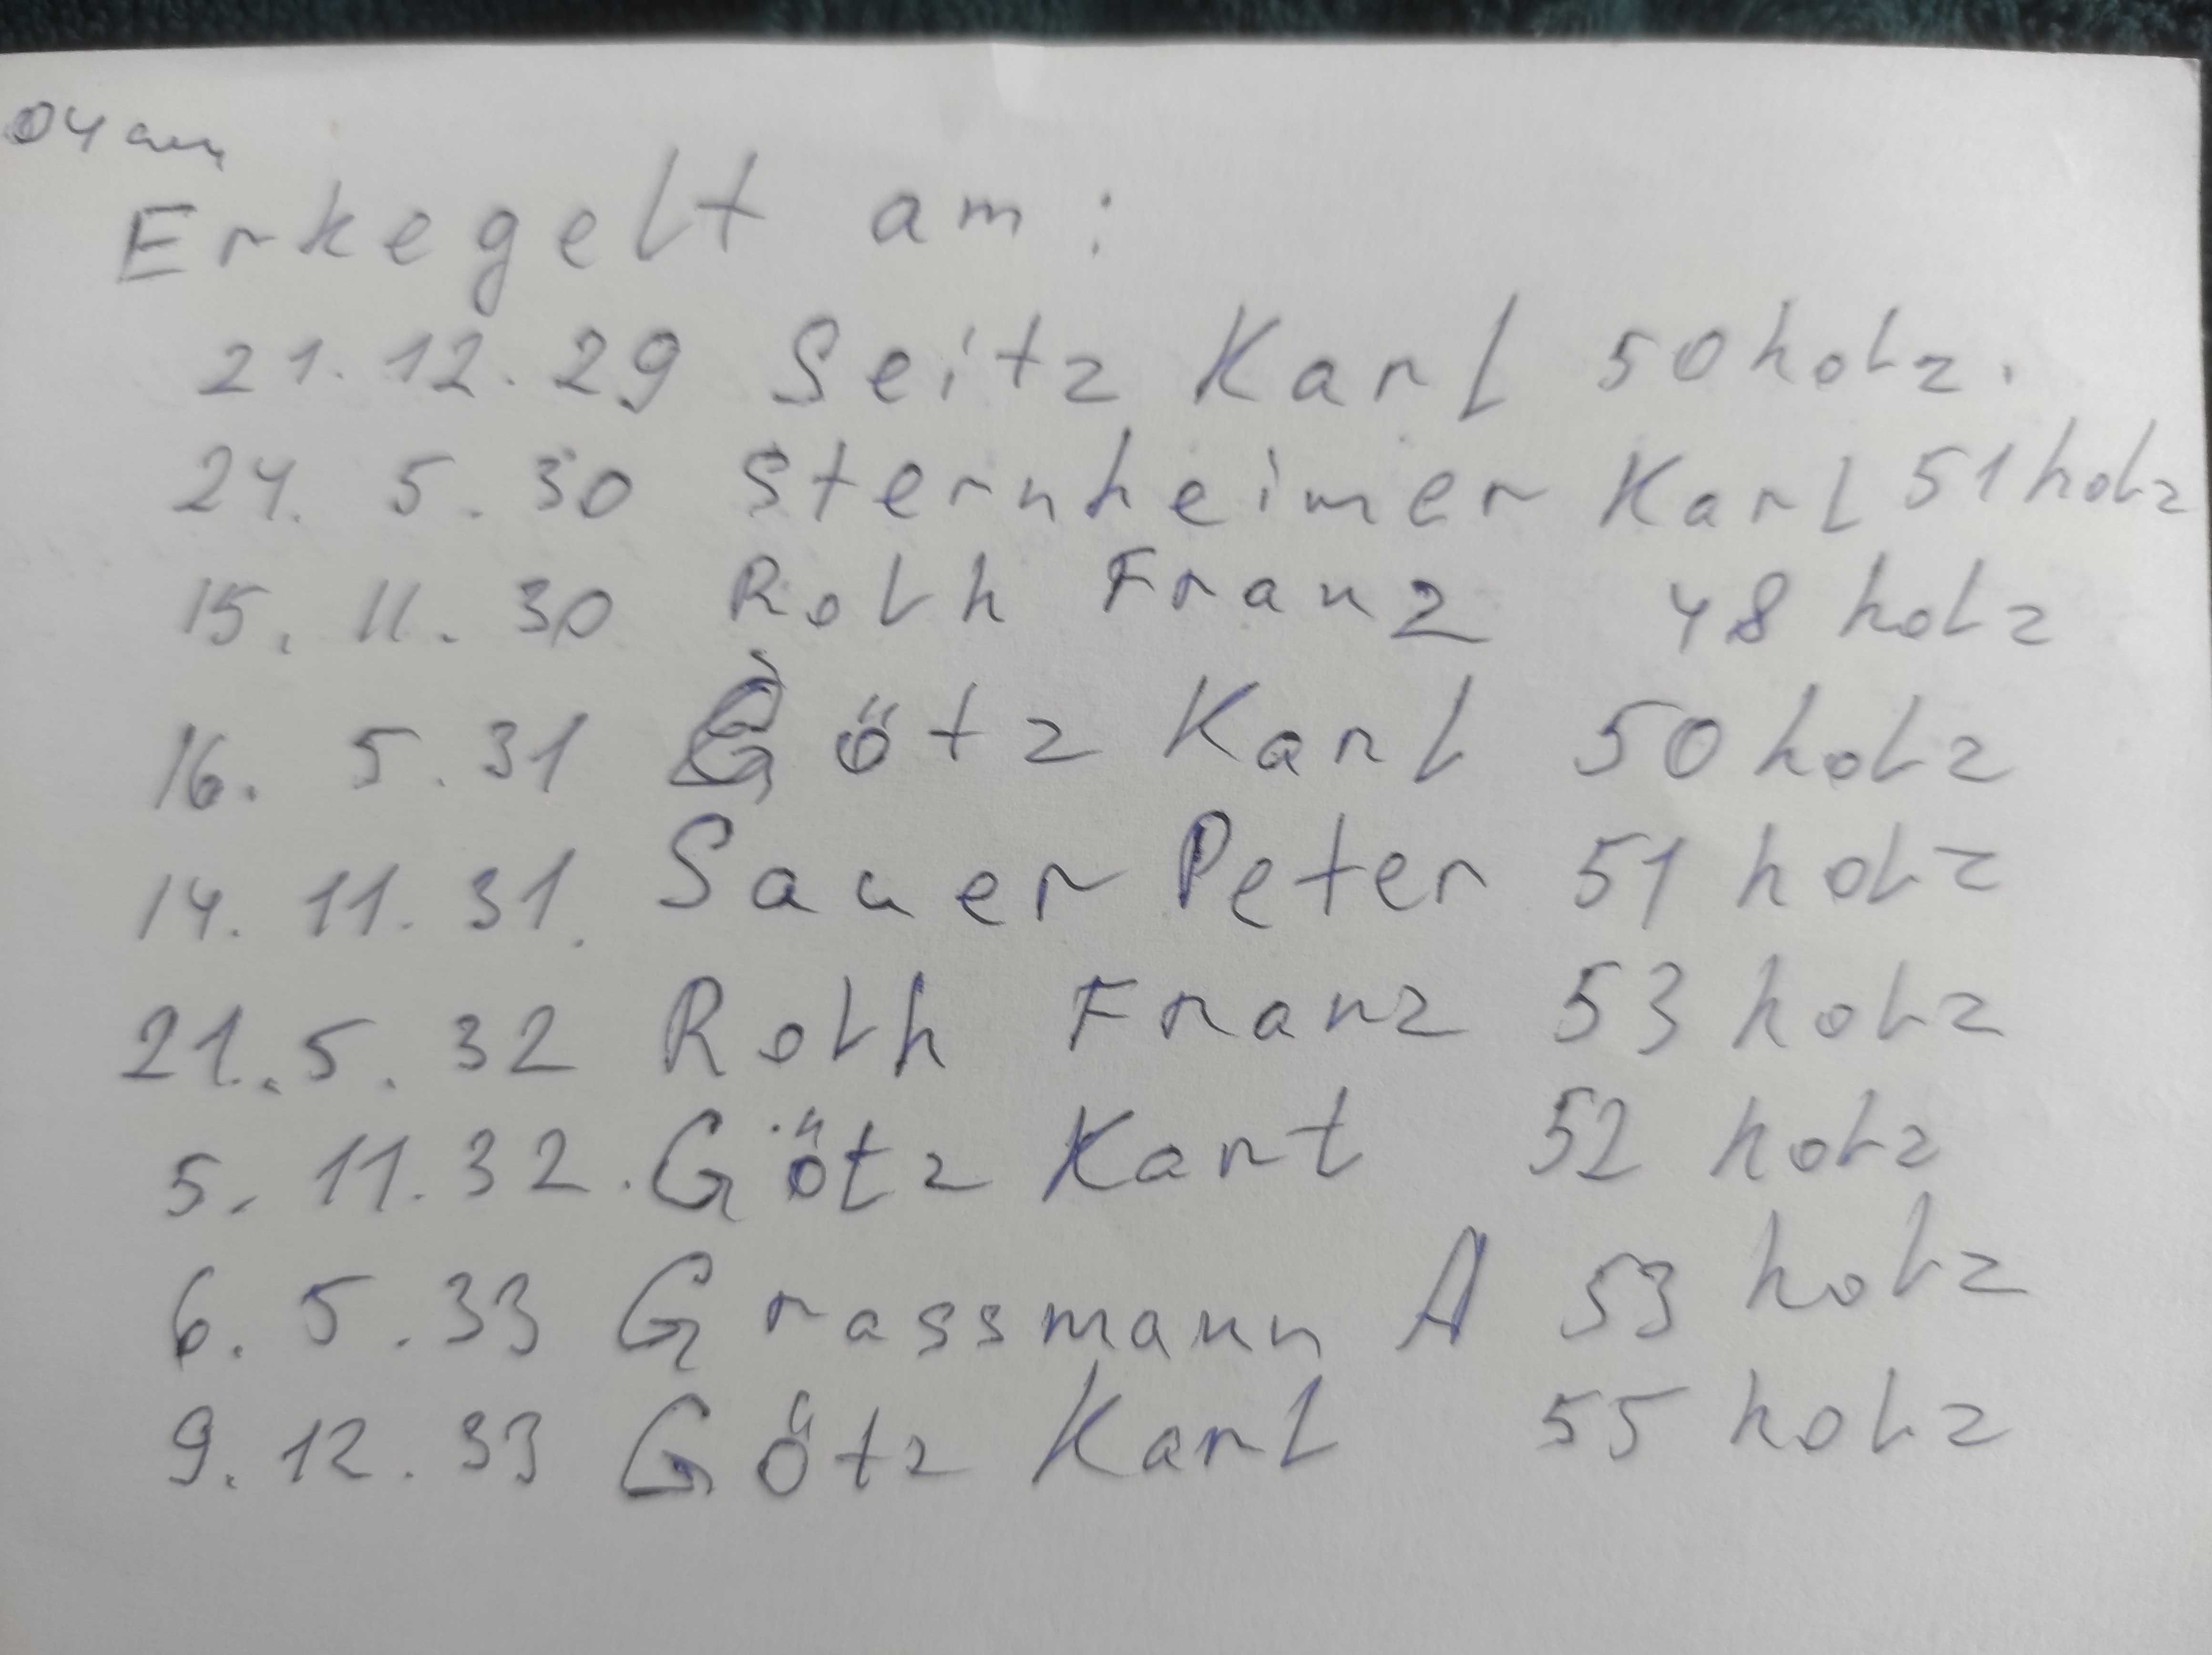 Erkegelt am:
21.12.29 Seitz Karl 50 holz.
24. 5.30 Sternheimer Karl 51 holz
15. 11. 30 Roth Franz 48 holz
16. 5.31 Götz Karl 50 holz
14. 11. 31. Sauer Peter 51 holz
21.5.32 Roth Franz 53 holz
5. 11.32. Götz Karl 52 holz
6.5.33 Grassmann A 53 holz
9.12.33 Götz Karl 55 holz